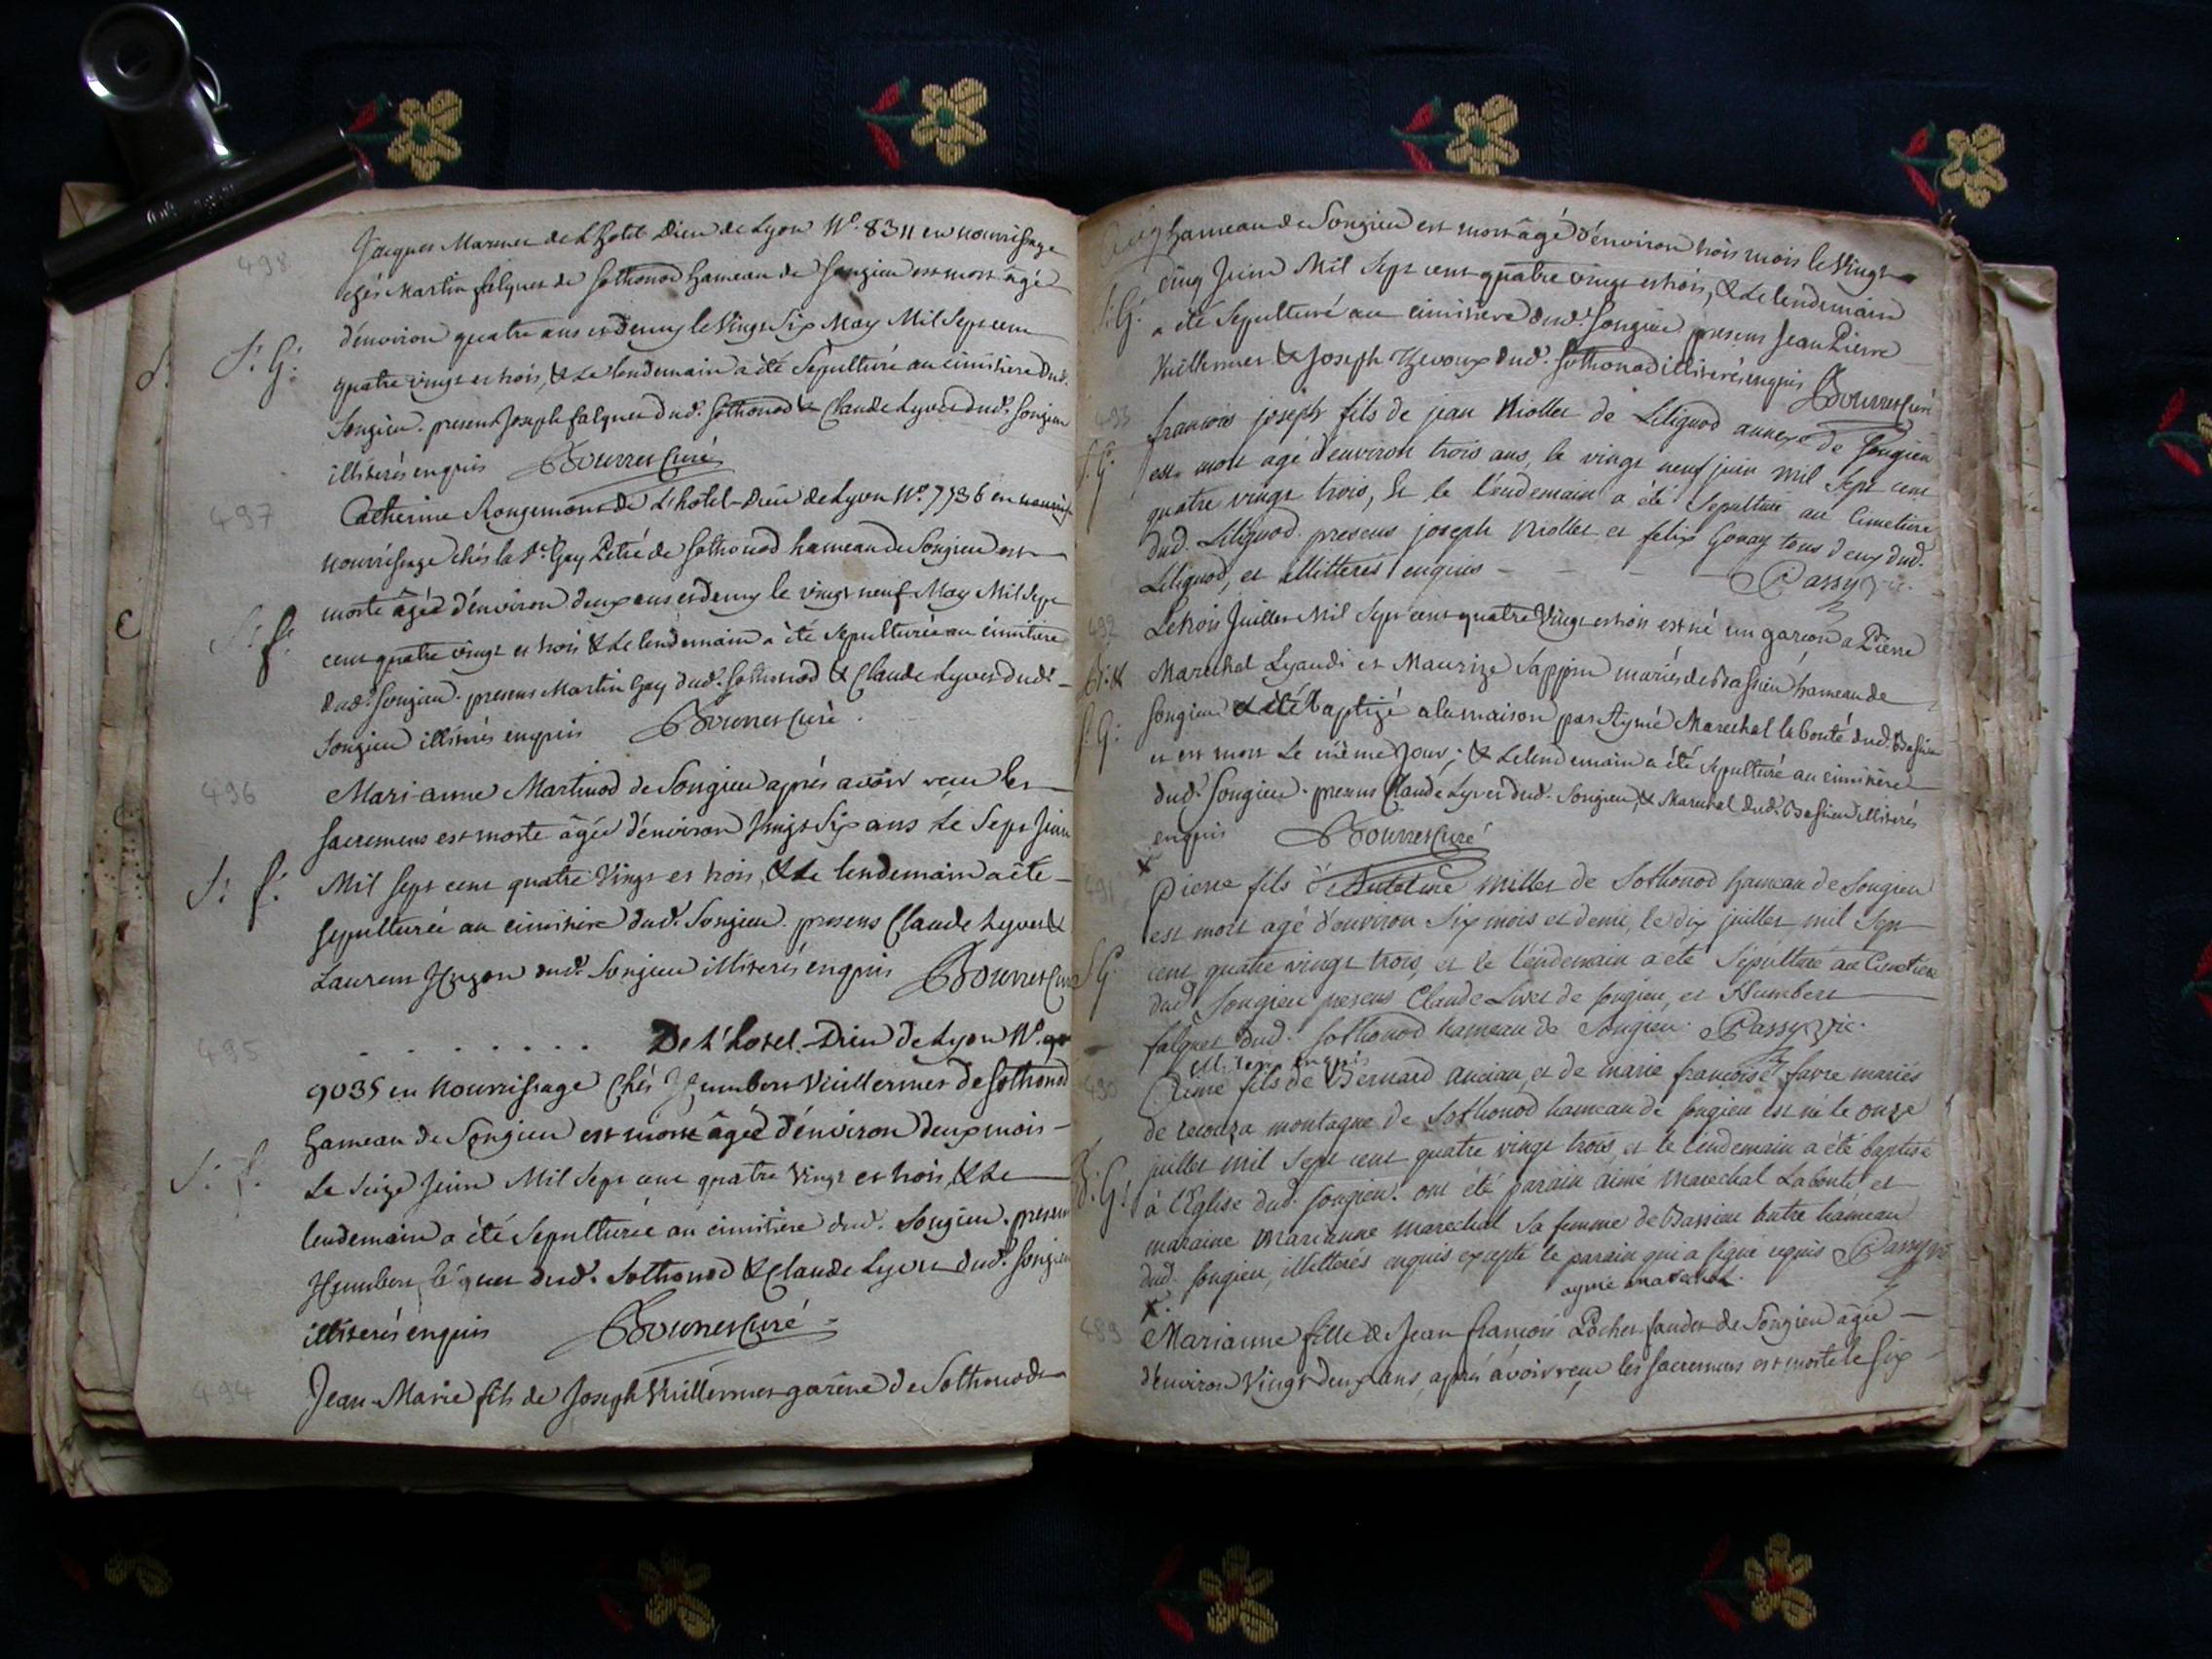 498
Jacques Marmet de L'hotel Dieu de Lyon N°. 8311 en nourrissage
chés Martin falquet de Sothonod hameau de Songieu est mort âgé
S: G:
d'environ quatre ans et demy le Vingt Six May Mil Sept cent
quatre vingt et trois, & Le lendemain a été Sepulturé au cimitiere dud.
Songieu. presens Joseph falquet dud. Sothonod & Claude Lyvet dud. Songieu
illiterés enquis Bourret Curé
497
Catherine Rougemont de L'hotel-Dieu de Lyon N°. 7736 en
nourrissage chés la Ve. Gay Petré de Sothonod hameau de Songieu est
S: f:
morte âgée d'environ deux ans et demy le vingt neuf May Mil Sept
cent quatre vingt et trois & Le lendemain a été sepulturée au cimitiere
dud. Songieu. presens Martin Gay dud. Sothonod & Claude Lyvet dudt.
Songieu illiterés enquis Bourret Curé.
496
Marianne Martinod de Songieu aprés avoir reçu les
sacremens est morte âgée d'environ Vingt Six ans Le Sept Juin
S: f:
Mil sept cent quatre Vingt et trois, & Le lendemain a été
sepulturée au cimitiere dud. Songieu. presens Claude Lyvet &
Laurent Hugon dud. Songieu illiterés enquis Bourret Curé
495
. . . . . . . . De L'hotel-Dieu de Lyon N°.
9035 en Nourrissage Chés Humbert Vuillermet de Sothonod
hameau de Songieu est morte âgée d'environ deux mois
S: f:
Le Seize Juin Mil Sept cent quatre Vingt et trois, & Le
lendemain a été Sepulturée au cimitiere dud. Songieu. presens
Humbert dud. Sothonod & Claude Lyvet dud. Songieu
illiterés enquis Bourret Curé
494
Jean-Marie fils de Joseph Vuillermet garène de Sothonod
hameau de Songieu est mort âgé d'environ trois mois le Vingt
cinq Juin Mil Sept cent quatre vingt et trois, & Le lendemain
S: G:
a été Sepulturé au cimitiere dud. Songieu presens Jean Pierre
Vuillermet & Joseph dud. Sothonod illiterés enquis Bourret Curé
493
françois joseph fils de jean Miollet de Lilignod annexe de Songieu
S: G:
est mort agé d'environ trois ans, le vingt neuf juin mil Sept cent
quatre vingt trois, & le lendemain a été Sepulturé au Cimetiere
dud. Lilignod. presens joseph Miollet et felix Gonay tous deux dud.
Lilignod, et illitterés enquis - - - Passy vic.
492
Le trois Juillet Mil Sept cent quatre Vingt et trois est né un garçon a Pierre
B: &
Marechal Lyaudi et Maurize Sappin mariés de Bassieu hameau de
S: G:
Songieu & été baptizé a la maison par Aymé Marechal labonté dud. Bassieu
et est mort Le même Jour; & Le lendemain a été sepulturé au cimitiere
dud. Songieu. presens Claude Lyvet dud. Songieu, & Marechal dud. Bassieu illiterés
enquis Bourret Curé
x
491
Pierre fils d' Millet de Sothonod hameau de Songieu
est mort agé d'environ Six mois et demi, le dix juillet mil Sept
S G:
cent quatre vingt trois, et le lendemain a été Sépulturé au Cimetiere
dud. Songieu presens Claude Livet de Songieu, et Humbert
falquet dud. Sothonod hameau de Songieu. Passy vic.
illiterés enquis
490
Aimé fils de Bernard ancian, et de marie françoise favre mariés
de recouza montagne de Sothonod hameau de Songieu est né le onze
B: G:
juillet mil Sept cent quatre vingt trois, et le lendemain a été baptisé
à l'Eglise dud. Songieu. ont été parain aimé Marechal Labonté et
maraine Marianne marechal sa femme de Bassieu hameau
dud. Songieu, illitterés enquis excepté le parain qui a signé requis Passy vic
aymé marechal.
x
489
Marianne fille de Jean françois Pochet faudet de Songieu âgée
d'environ Vingt deux ans, aprés avoir reçu les sacremens est morte le Six